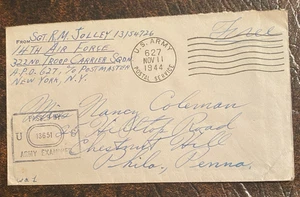 FROM SGT R.M. JOLLEY 13154726
14TH AIR FORCE
322ND TROOP CARRIER SQDN
A.P.O. 627, % POSTMASTER
NEW YORK, N.Y.
U.S. ARMY
627
NOV 11
1944
POSTAL SERVICE
Free
Miss Nancy Coleman
Hilltop Road
Chestnut Hill
Phila, Penna.
U
ARMY EXAMINER